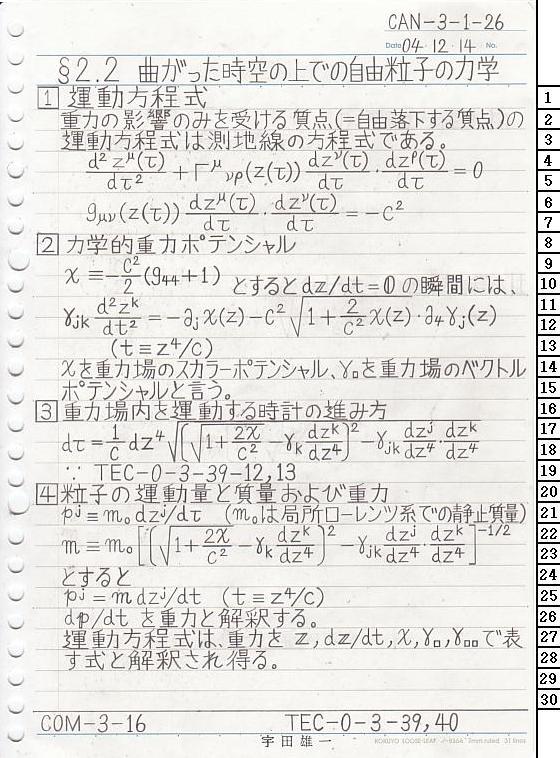 CAN-3-1-26
Date 04・12・14 No.
§2.2 曲がった時空の上での自由粒子の力学
1 運動方程式
重力の影響のみを受ける質点(=自由落下する質点)の
運動方程式は測地線の方程式である。
d²z^μ(τ)/dτ² + Γ^μ_νρ(z(τ)) dz^ν(τ)/dτ · dz^ρ(τ)/dτ = 0
g_μν(z(τ)) dz^μ(τ)/dτ · dz^ν(τ)/dτ = -c²
2 力学的重力ポテンシャル
χ ≡ -c²/2 (g₄₄+1) とするとdz/dt=0の瞬間には、
γ_jk d²z^k/dt² = -∂_jχ(z) - c²√(1+2/c² χ(z))·∂₄γ_j(z)
(t≡z⁴/c)
χを重力場のスカラーポテンシャル、γ□を重力場のベクトル
ポテンシャルと言う。
3 重力場内を運動する時計の進み方
dτ = 1/c dz⁴ √((√(1+2χ/c²) - γ_k dz^k/dz⁴)² - γ_jk dz^j/dz⁴ · dz^k/dz⁴)
∵ TEC-0-3-39-12,13
4 粒子の運動量と質量および重力
p^j ≡ m₀dz^j/dτ (m₀は局所ローレンツ系での静止質量)
m ≡ m₀[(√(1+2χ/c²) - γ_k dz^k/dz⁴)² - γ_jk dz^j/dz⁴ · dz^k/dz⁴]^(-1/2)
とすると
p^j = m dz^j/dt (t≡z⁴/c)
dp/dt を重力と解釈する。
運動方程式は、重力を z, dz/dt, χ, γ□, γ□□で表
す式と解釈され得る。
COM-3-16 TEC-0-3-39,40
宇田雄一 KOKUYO LOOSE-LEAF ノ-836A 7mm ruled 31 lines
1
2
3
4
5
6
7
8
9
10
11
12
13
14
15
16
17
18
19
20
21
22
23
24
25
26
27
28
29
30